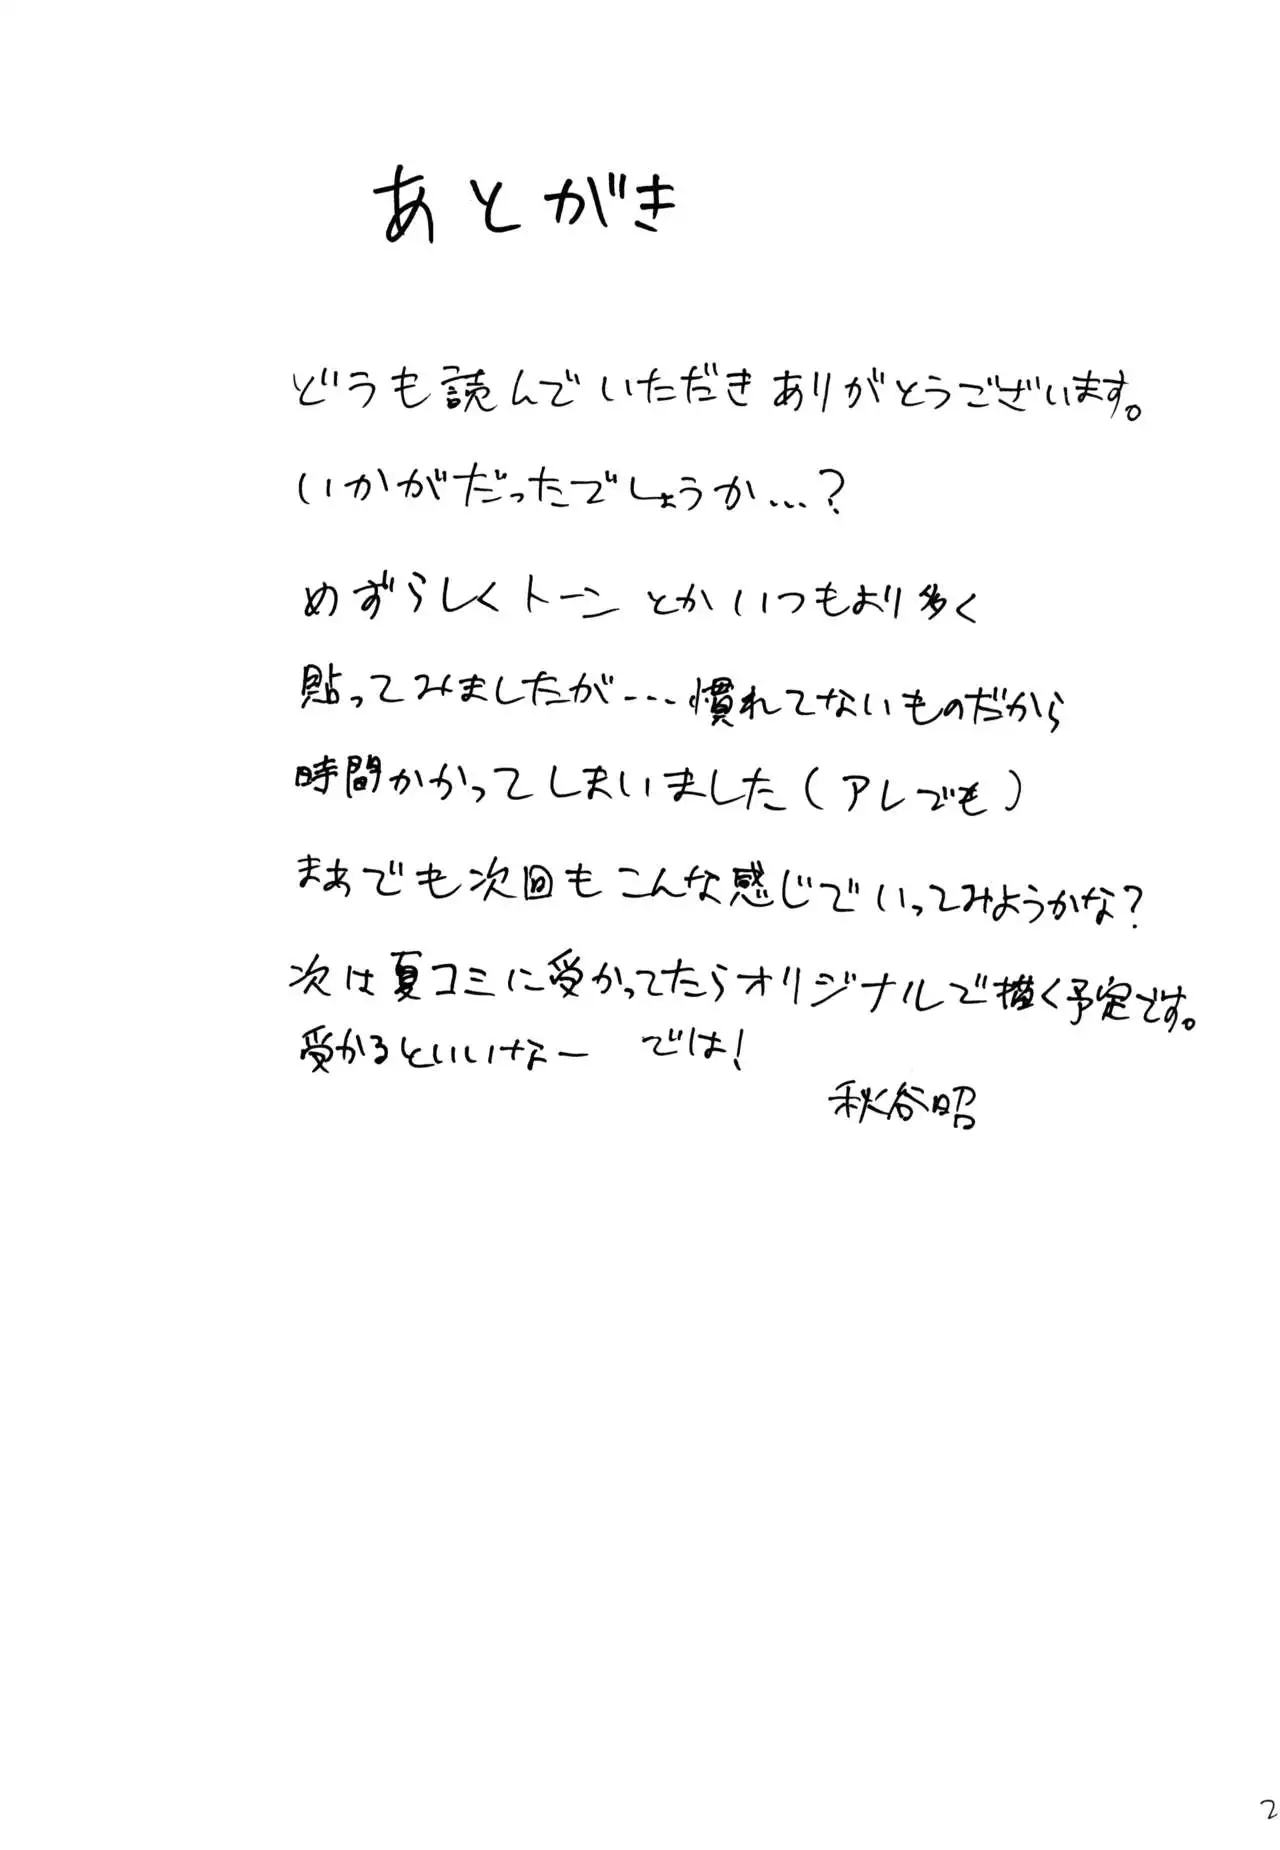 あとがき
どうも読んでいただきありがとうございます。
いかがだったでしょうか…?
めずらしくトーンとかいつもより多く
貼ってみましたが…慣れてないものだから
時間かかってしまいました(アレでも)
まあでも次回もこんな感じでいってみようかな?
次は夏コミに受かってたらオリジナルで描く予定です。
受かるといいなー では!
秋谷昭
2